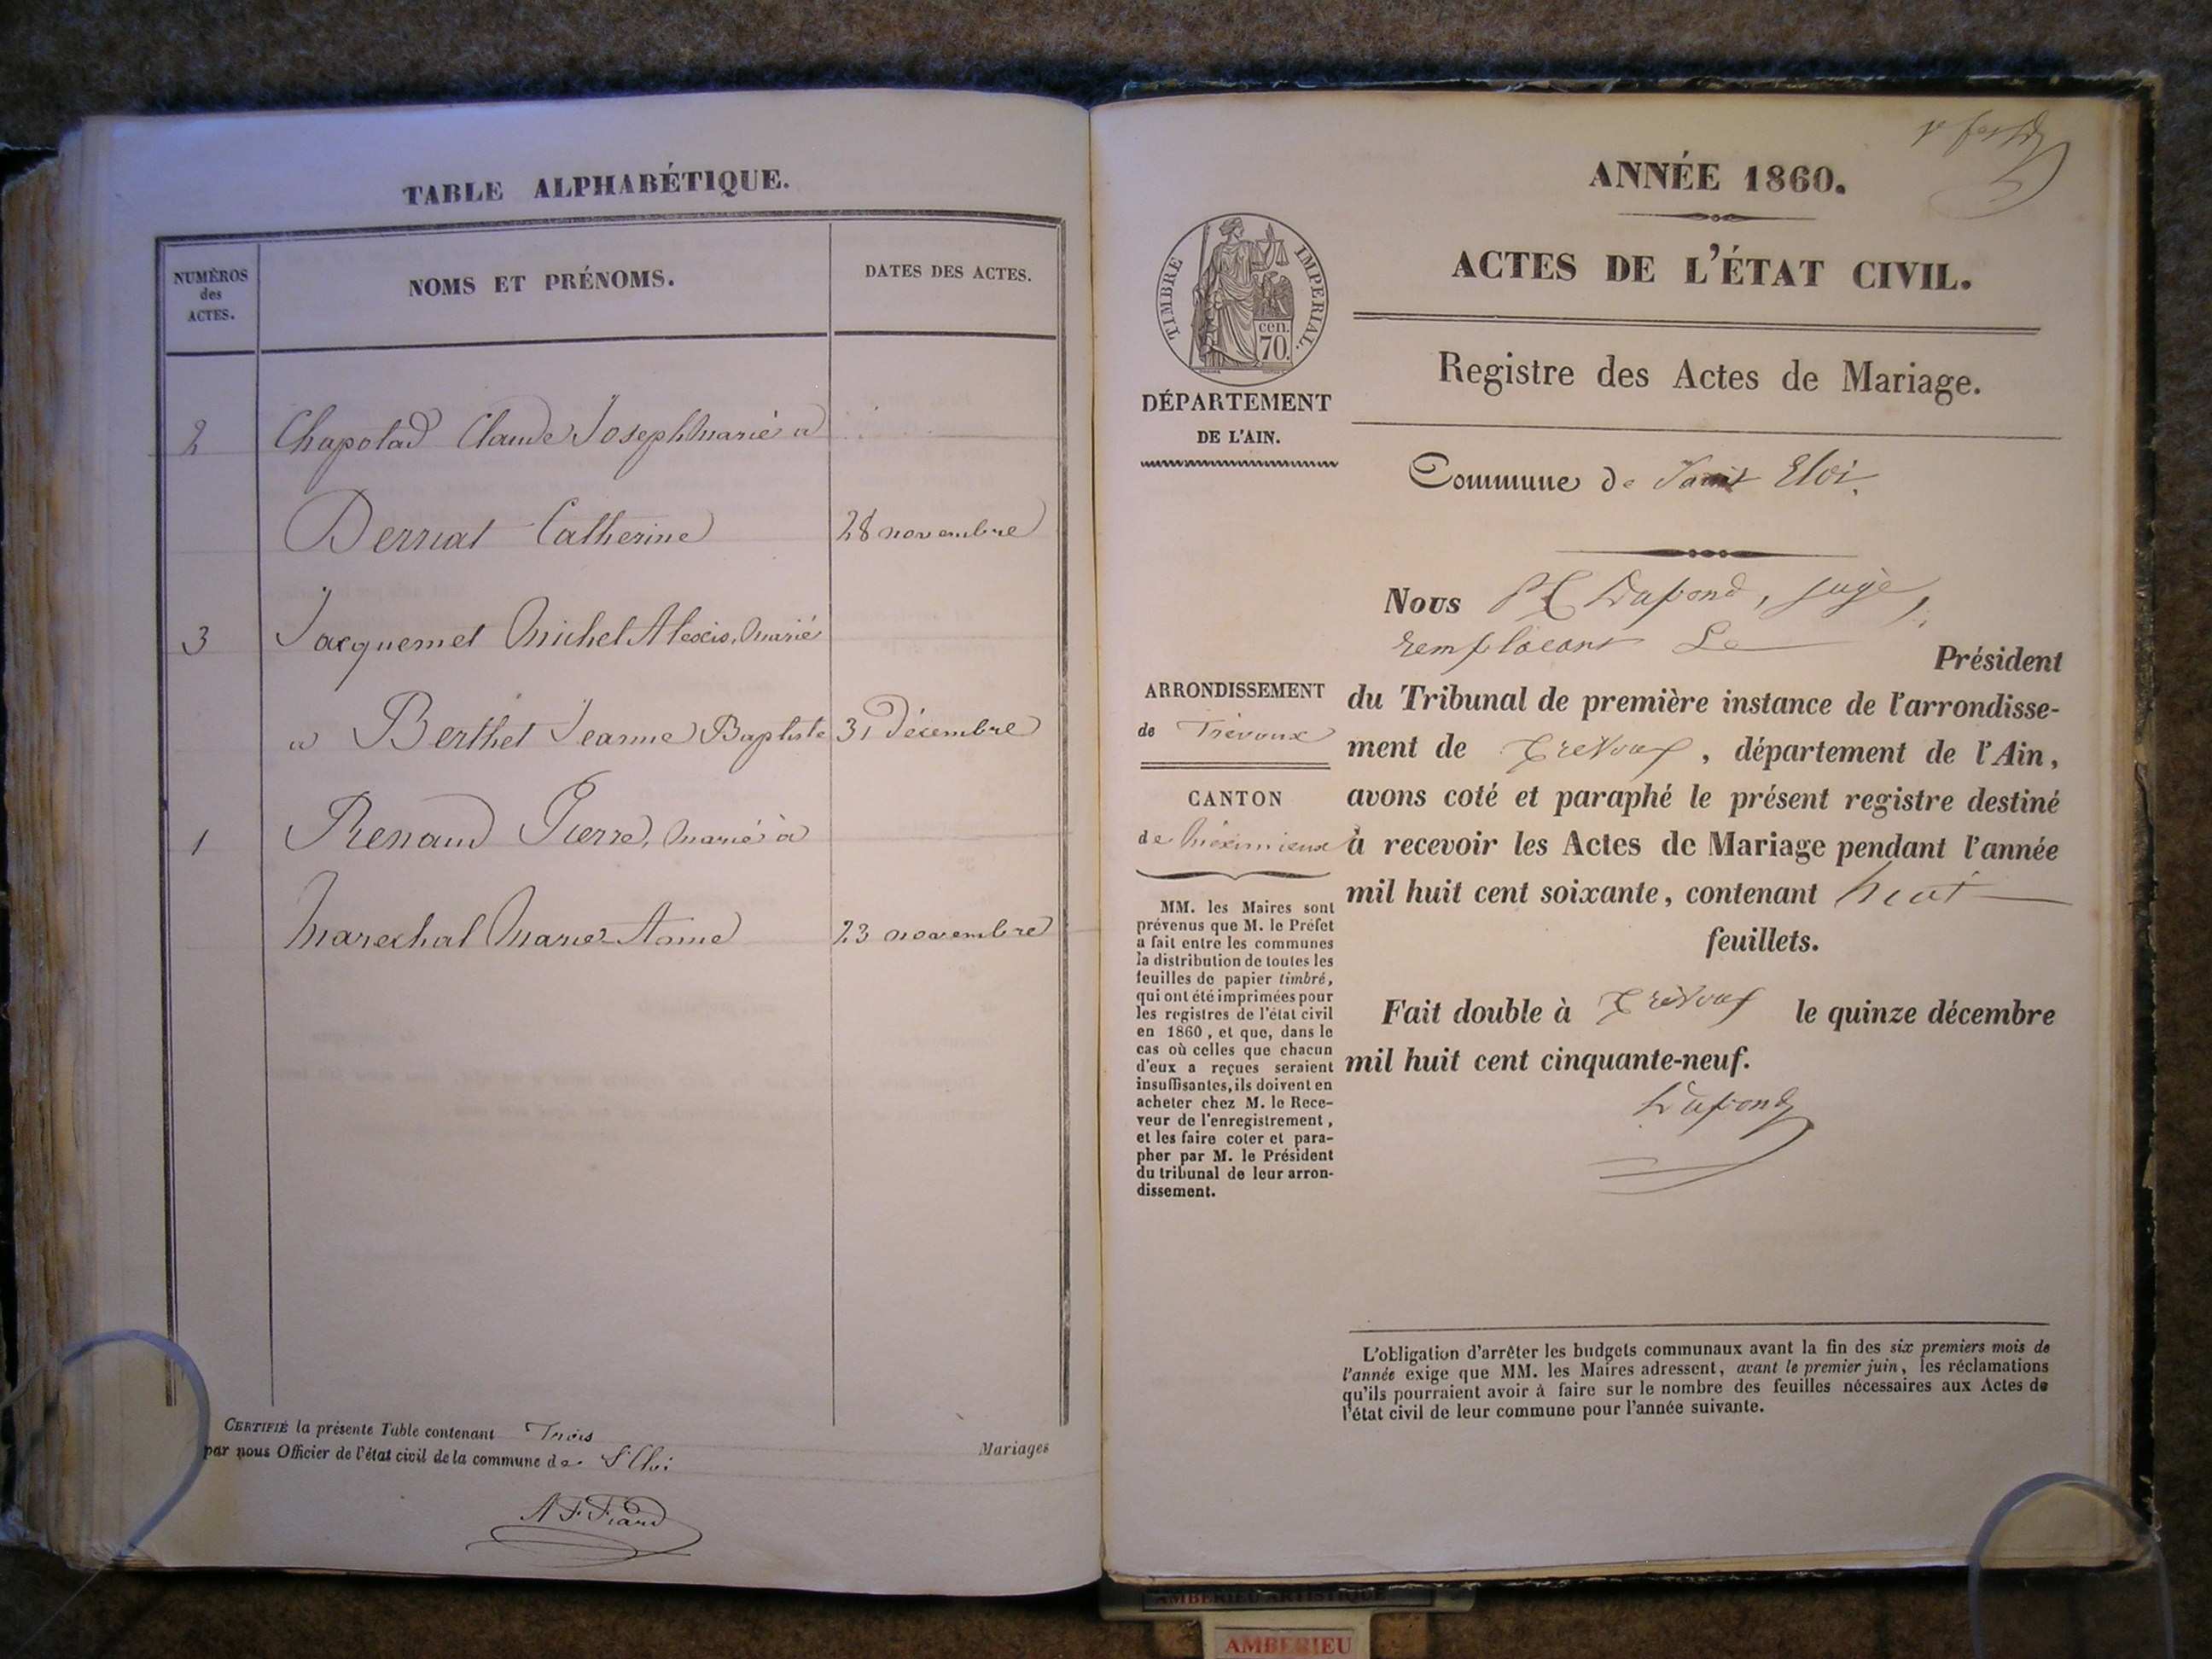 TABLE ALPHABÉTIQUE.
NUMÉROS
des
ACTES.
NOMS ET PRÉNOMS.
DATES DES ACTES.
2 Chapolad Claude Joseph marié a
Derriat Catherine 28 novembre
3 Jacquemet Michel Alexis, marié
a Berthet Jeanne Baptiste 31 Décembre
1 Renaud Pierre, marié à
Marechal Marie 23 novembre
CERTIFIÉ la présente Table contenant Trois
Mariages
par nous Officier de l'état civil de la commune de St Eloi
ANNÉE 1860.
TIMBRE IMPERIAL.
cen.
70.
ACTES DE L'ÉTAT CIVIL.
Registre des Actes de Mariage.
DÉPARTEMENT
DE L'AIN.
Commune de Saint Eloi.
Nous Dupond, juge,
remplacant Le
Président
ARRONDISSEMENT
de Trévoux
CANTON
de Méximieux
MM. les Maires sont
prévenus que M. le Préfet
a fait entre les communes
la distribution de toutes les
feuilles de papier timbré,
qui ont été imprimées pour
les registres de l'état civil
en 1860, et que, dans le
cas où celles que chacun
d'eux a reçues seraient
insuffisantes, ils doivent en
acheter chez M. le Rece-
veur de l'enregistrement,
et les faire coter et para-
pher par M. le Président
du tribunal de leur arron-
dissement.
du Tribunal de première instance de l'arrondisse-
ment de Trevoux, département de l'Ain,
avons coté et paraphé le présent registre destiné
à recevoir les Actes de Mariage pendant l'année
mil huit cent soixante, contenant huit
feuillets.
Fait double à Trévoux le quinze décembre
mil huit cent cinquante-neuf.
Dupond
L'obligation d'arrêter les budgets communaux avant la fin des six premiers mois de
l'année exige que MM. les Maires adressent, avant le premier juin, les réclamations
qu'ils pourraient avoir à faire sur le nombre des feuilles nécessaires aux Actes de
l'état civil de leur commune pour l'année suivante.
AMBERIEU ARTISTIQUE
AMBERIEU